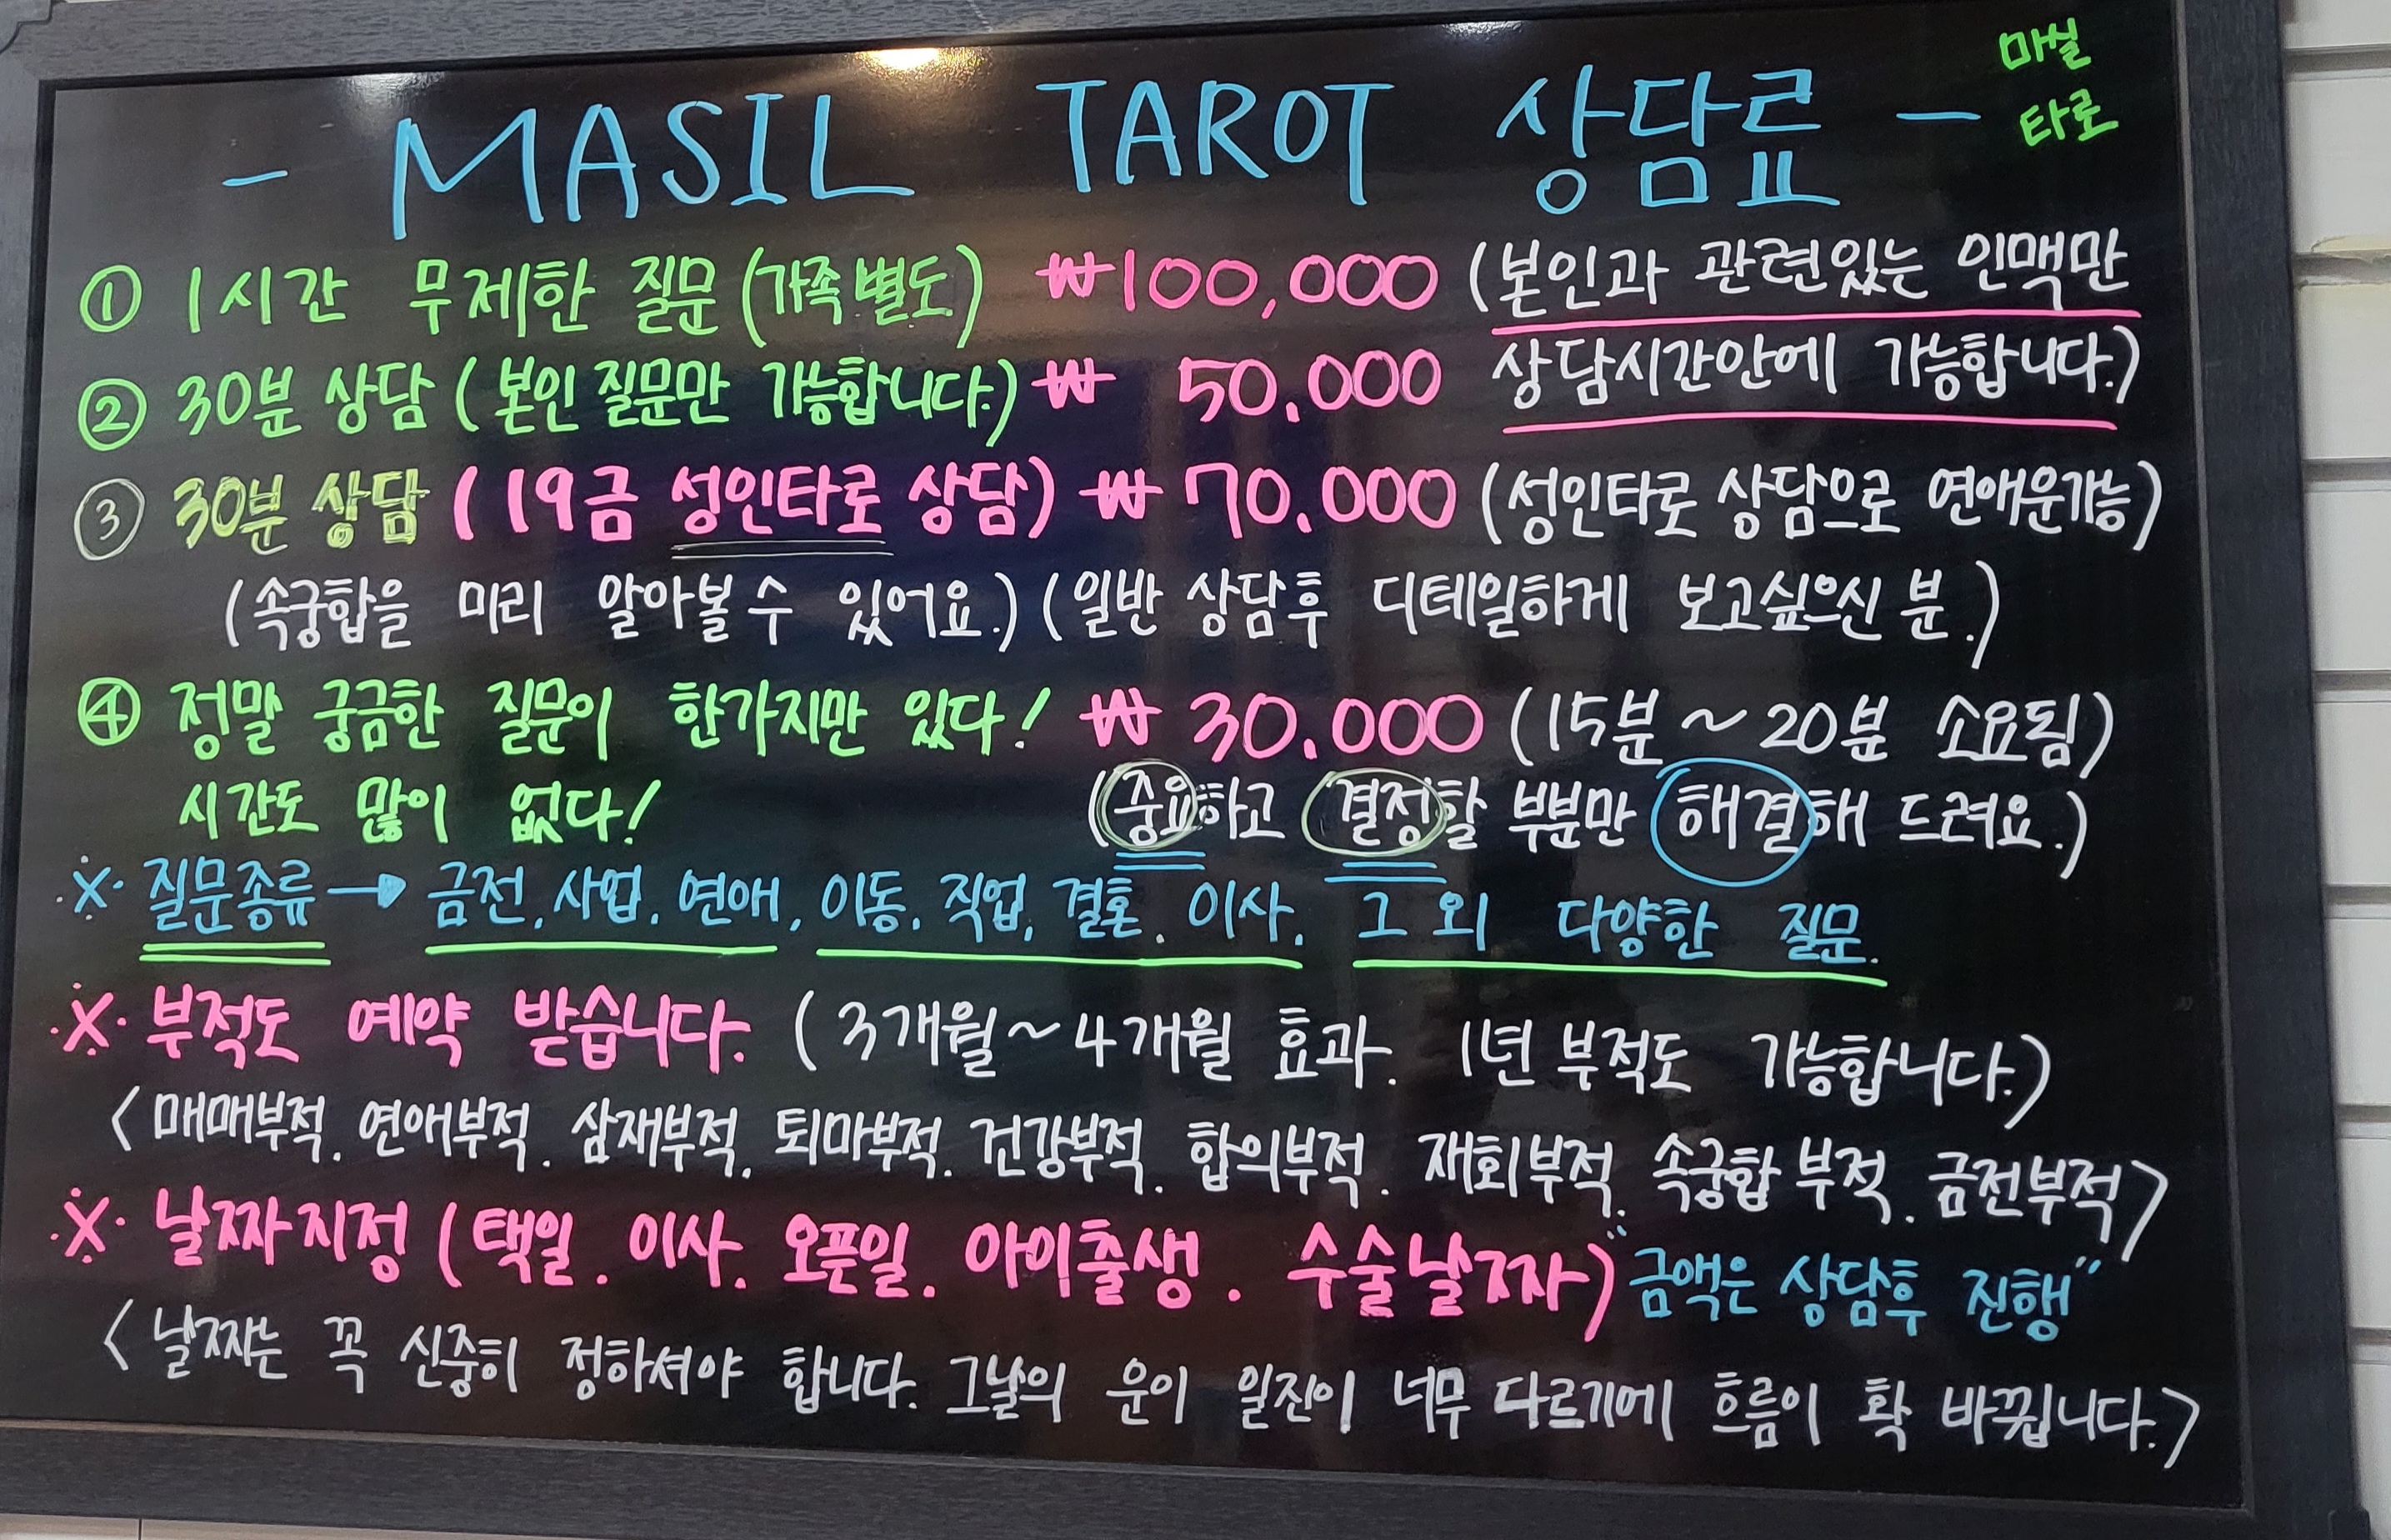 - MASIL TAROT 상담료 -
마실
타로
① 1시간 무제한 질문 (가족 별도) ₩100,000 (본인과 관련있는 인맥만
② 30분 상담 (본인 질문만 가능합니다.) ₩ 50.000 상담시간안에 가능합니다.)
③ 30분 상담 (19금 성인타로 상담) ₩ 70.000 (성인타로 상담으로 연애운가능)
(속궁합을 미리 알아볼 수 있어요.) (일반 상담후 디테일하게 보고싶으신 분.)
④ 정말 궁금한 질문이 한가지만 있다! ₩ 30.000 (15분 ~ 20분 소요됨)
시간도 많이 없다! (중요하고 결정할 부분만 해결해 드려요.)
※ 질문종류 → 금전. 사업. 연애, 이동. 직업. 결혼. 이사. 그 외 다양한 질문.
※ 부적도 예약 받습니다. (3개월 ~ 4개월 효과. 1년 부적도 가능합니다.)
<매매부적. 연애부적. 삼재부적. 퇴마부적. 건강부적. 합의부적. 재회부적. 속궁합 부적. 금전부적>
※ 날짜지정 (택일. 이사. 오픈일. 아이출생. 수술날짜) "금액은 상담후 진행"
<날짜는 꼭 신중히 정하셔야 합니다. 그날의 운이 일진이 너무 다르기에 흐름이 확 바뀝니다.>